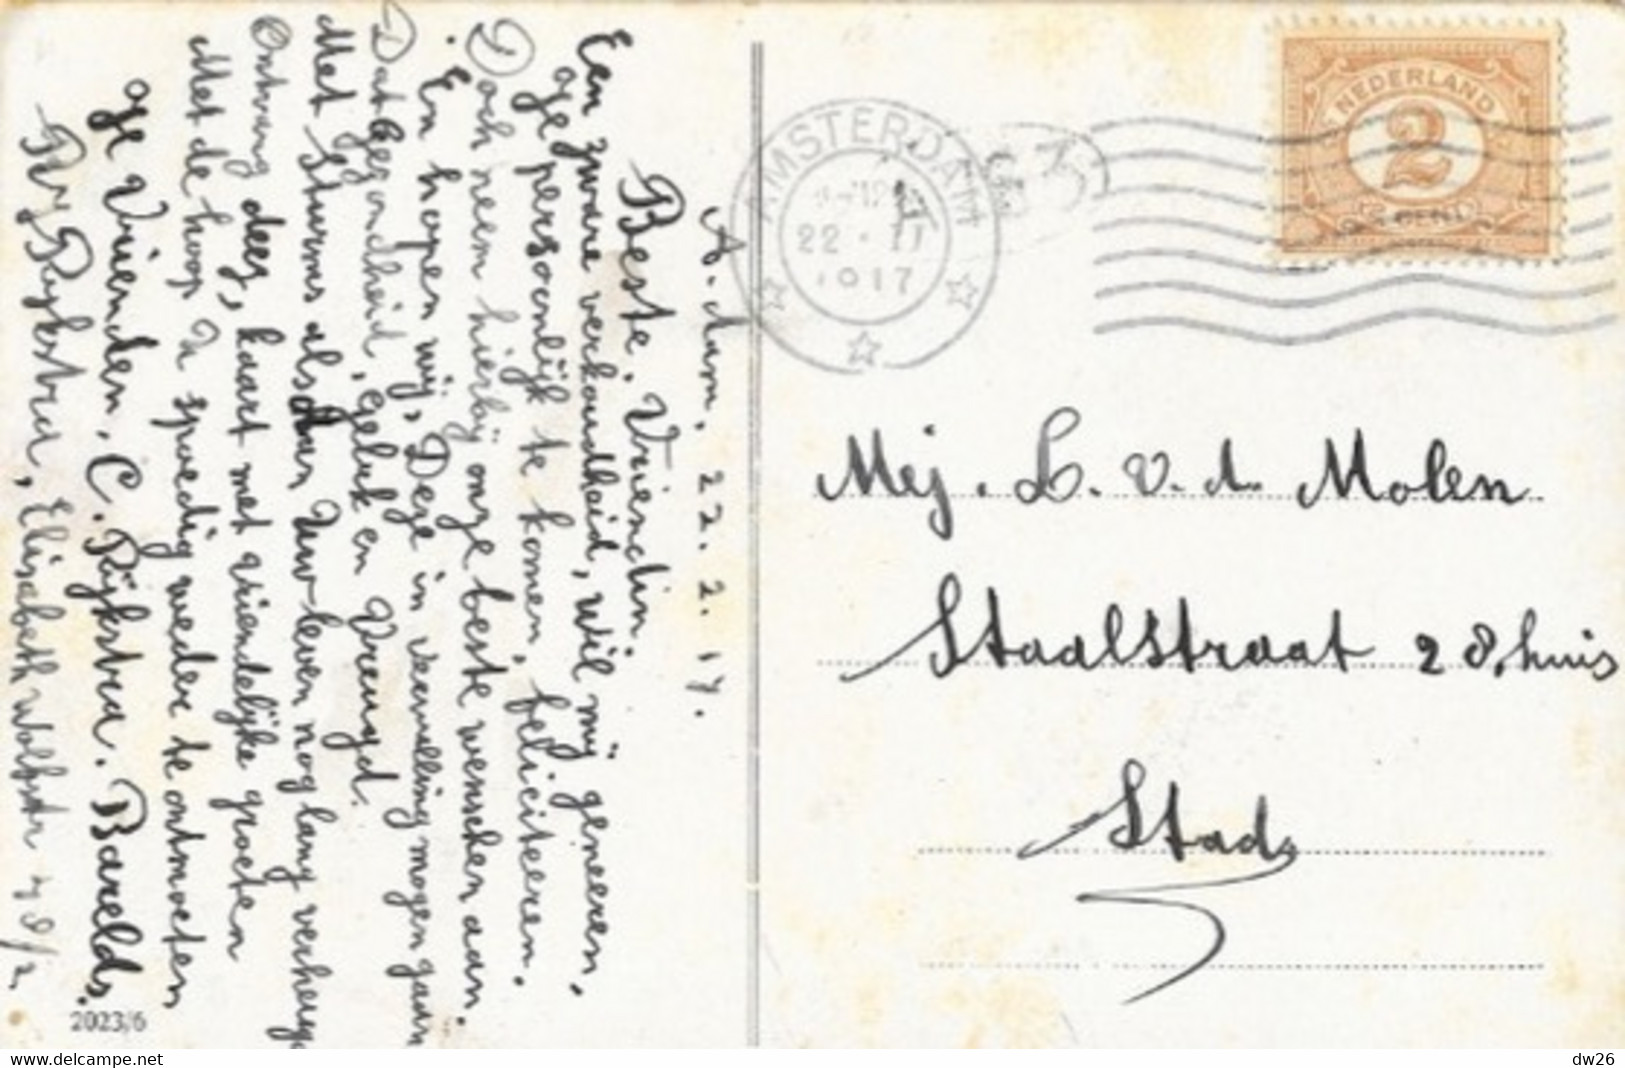 A.dam. 22.2.17.
Beste. Vriendin.
Een zware verkoudheid, wil mij geneeren,
ogepersoonlijk te komen, feliciteeren.
Doch neem hierbij onze beste wenschen aan.
En hopen wij, Deze in vervulling mogen gaan
Dat Gezondheid, geluk en Vreugd.
Met Sturms alsdan Uw leven nog lang verheugd
Ontvang deez, kaart met vriendelijke groeten
Met de hoop U spoedig weder te ontmoeten
oge Vrienden. C. Rijkstra. Barelds.
Rijkstra, Elisabeth Wolfstr 48/2
2023/6
AMSTERDAM
22.II
1917
NEDERLAND
2
CENT
Mej. L. v. d. Molen
Staalstraat 28, huis
Stad
delcampe.net
dw26